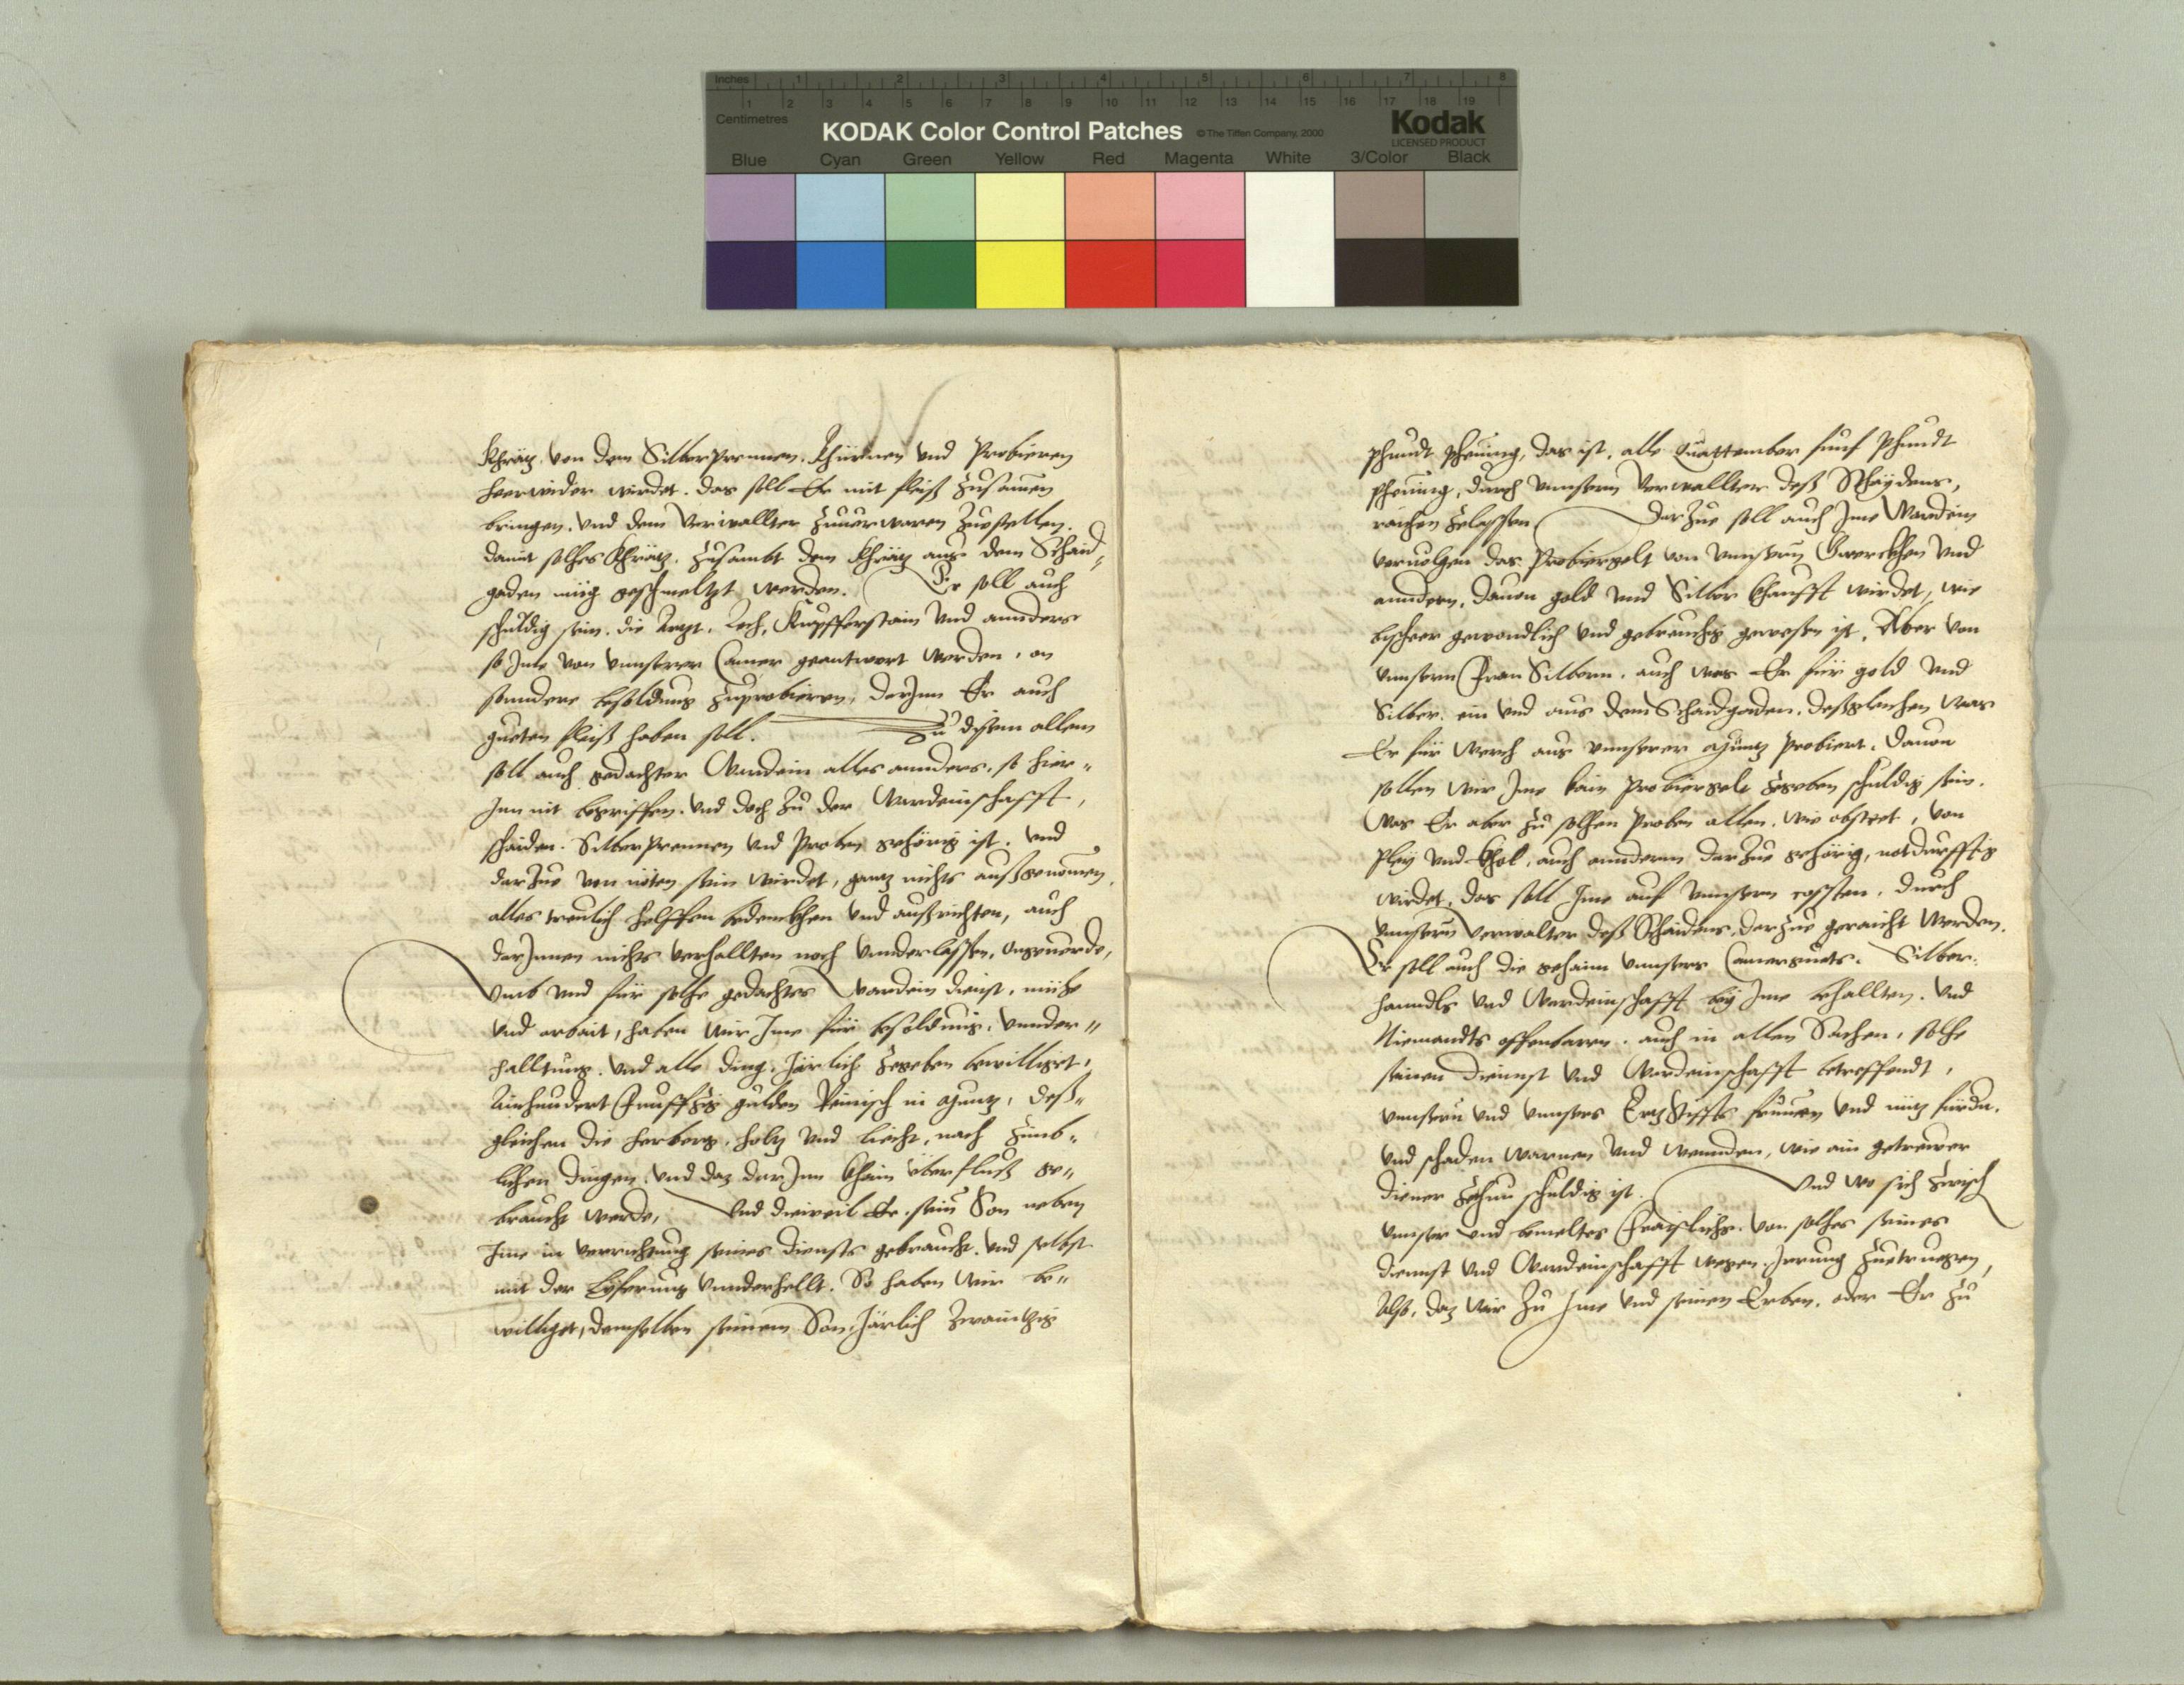 Inches 1 2 3 4 5 6 7 8
1 2 3 4 5 6 7 8 9 10 11 12 13 14 15 16 17 18 19
Centimetres
KODAK Color Control Patches © The Tiffen Company, 2000 Kodak
LICENSED PRODUCT
Blue Cyan Green Yellow Red Magenta White 3/Color Black
Khrätz von dem Silberprennen, Khürnen vnd Probieren
herwider wirdet. das soll Er mit fleiß zusamen
bringen. vnd dem Verwallter zuuerwaren zuestellen.
damit solhes Khrätz, zusambt dem Khrätz aus dem Schaid-
gaden müg geschmeltzt werden. Er soll auch
schuldig sein. die Artzt, Lech, Kupfferstain vnd annders
so Ime von vnnserer Camer geantwort werden, on
sonndere besoldung zuprobieren, darInn Er auch
gueten fleiß haben soll. Zu disem allem
soll auch gedachter Wardein alles annders, so hier-
Inn nit begriffen. vnd doch zu der Wardeinschafft,
schaiden. Silberprennen vnd Proben gehörig ist. vnd
darzue von nöten sein wirdet, gantz nichts außgenomen,
alles treulich helffen bedenckhen vnd außrichten, auch
darInnen nichts verhallten noch vnnderlassen, ongeuerde,
Vmb vnd für solhe gedachtes Wardein dienst, mühe
vnd arbait, haben wir Ime für besoldung, vnnder-
halltung. vnd alle ding. Järlich zegeben bewilliget,
Ainhundert Funffzig gulden Reinisch in Müntz, deß-
gleichen die herberg, holtz vnd liecht, nach zimb-
lichen dingen, vnd daz darInn khain überfluß ge-
braucht werde, Vnd dieweil Er sein Son neben
Ime in verrichtung seines diensts gebraucht. vnd selbst
mit der Lyferung vnnderhellt. So haben wir be-
williget, demselben seinem Son, Järlich Zwaintzig
Phundt Phening, das ist. alle Quattember funf Phundt
Phening, durch vnnsern Verwallter deß Schaydens,
raichen zelassen Darzue soll auch Ime Wardein
veruolgen das Probiergelt von vnnsern Gwerckhen vnd
anndern, dauon gold vnd Silber khaufft wirdet, wie
bisheer gewondlich vnd gebreuchig gewesen ist, Aber von
vnnsern Fron Silbern. auch was Er für gold vnd
Silber. ein vnd aus dem Schaidgaden, desßgleichen was
Er für Werch aus vnnserer Müntz probiert. dauon
sollen wir Ime kain Probiergelt zegeben schuldig sein.
Was Er aber zu solhen Proben allen, wie obsteet, von
Pley vnd khol, auch annderm darzue gehörig, notdurfftig
wirdet, das soll Ime auf vnnsern cossten, durch
vnnsern Verwalter deß Schaidens, darzue geraicht werden.
Er soll auch die gehaim vnnsers Camerguets. Silber-
hanndls vnd Wardeinschafft bey Ime behallten. vnd
Niemandts offenbaren. auch in allen Sachen, solhe
seinen dienst vnd Wardeinschafft betreffendt,
vnnsern vnd vnnsers Ertzstiffts frumen vnd nutz fürdn.
vnd schaden warnen vnd wennden, wie ain getrewer
diener zethun schuldig ist. Vnd wo sich zwisch
vnnser vnd bemeltes von solhes seines
diennst vnd Wardeinschafft wegen Irrung zuetruegen,
Also, daz wir zu Ime vnd seinen Erben, oder Er zu